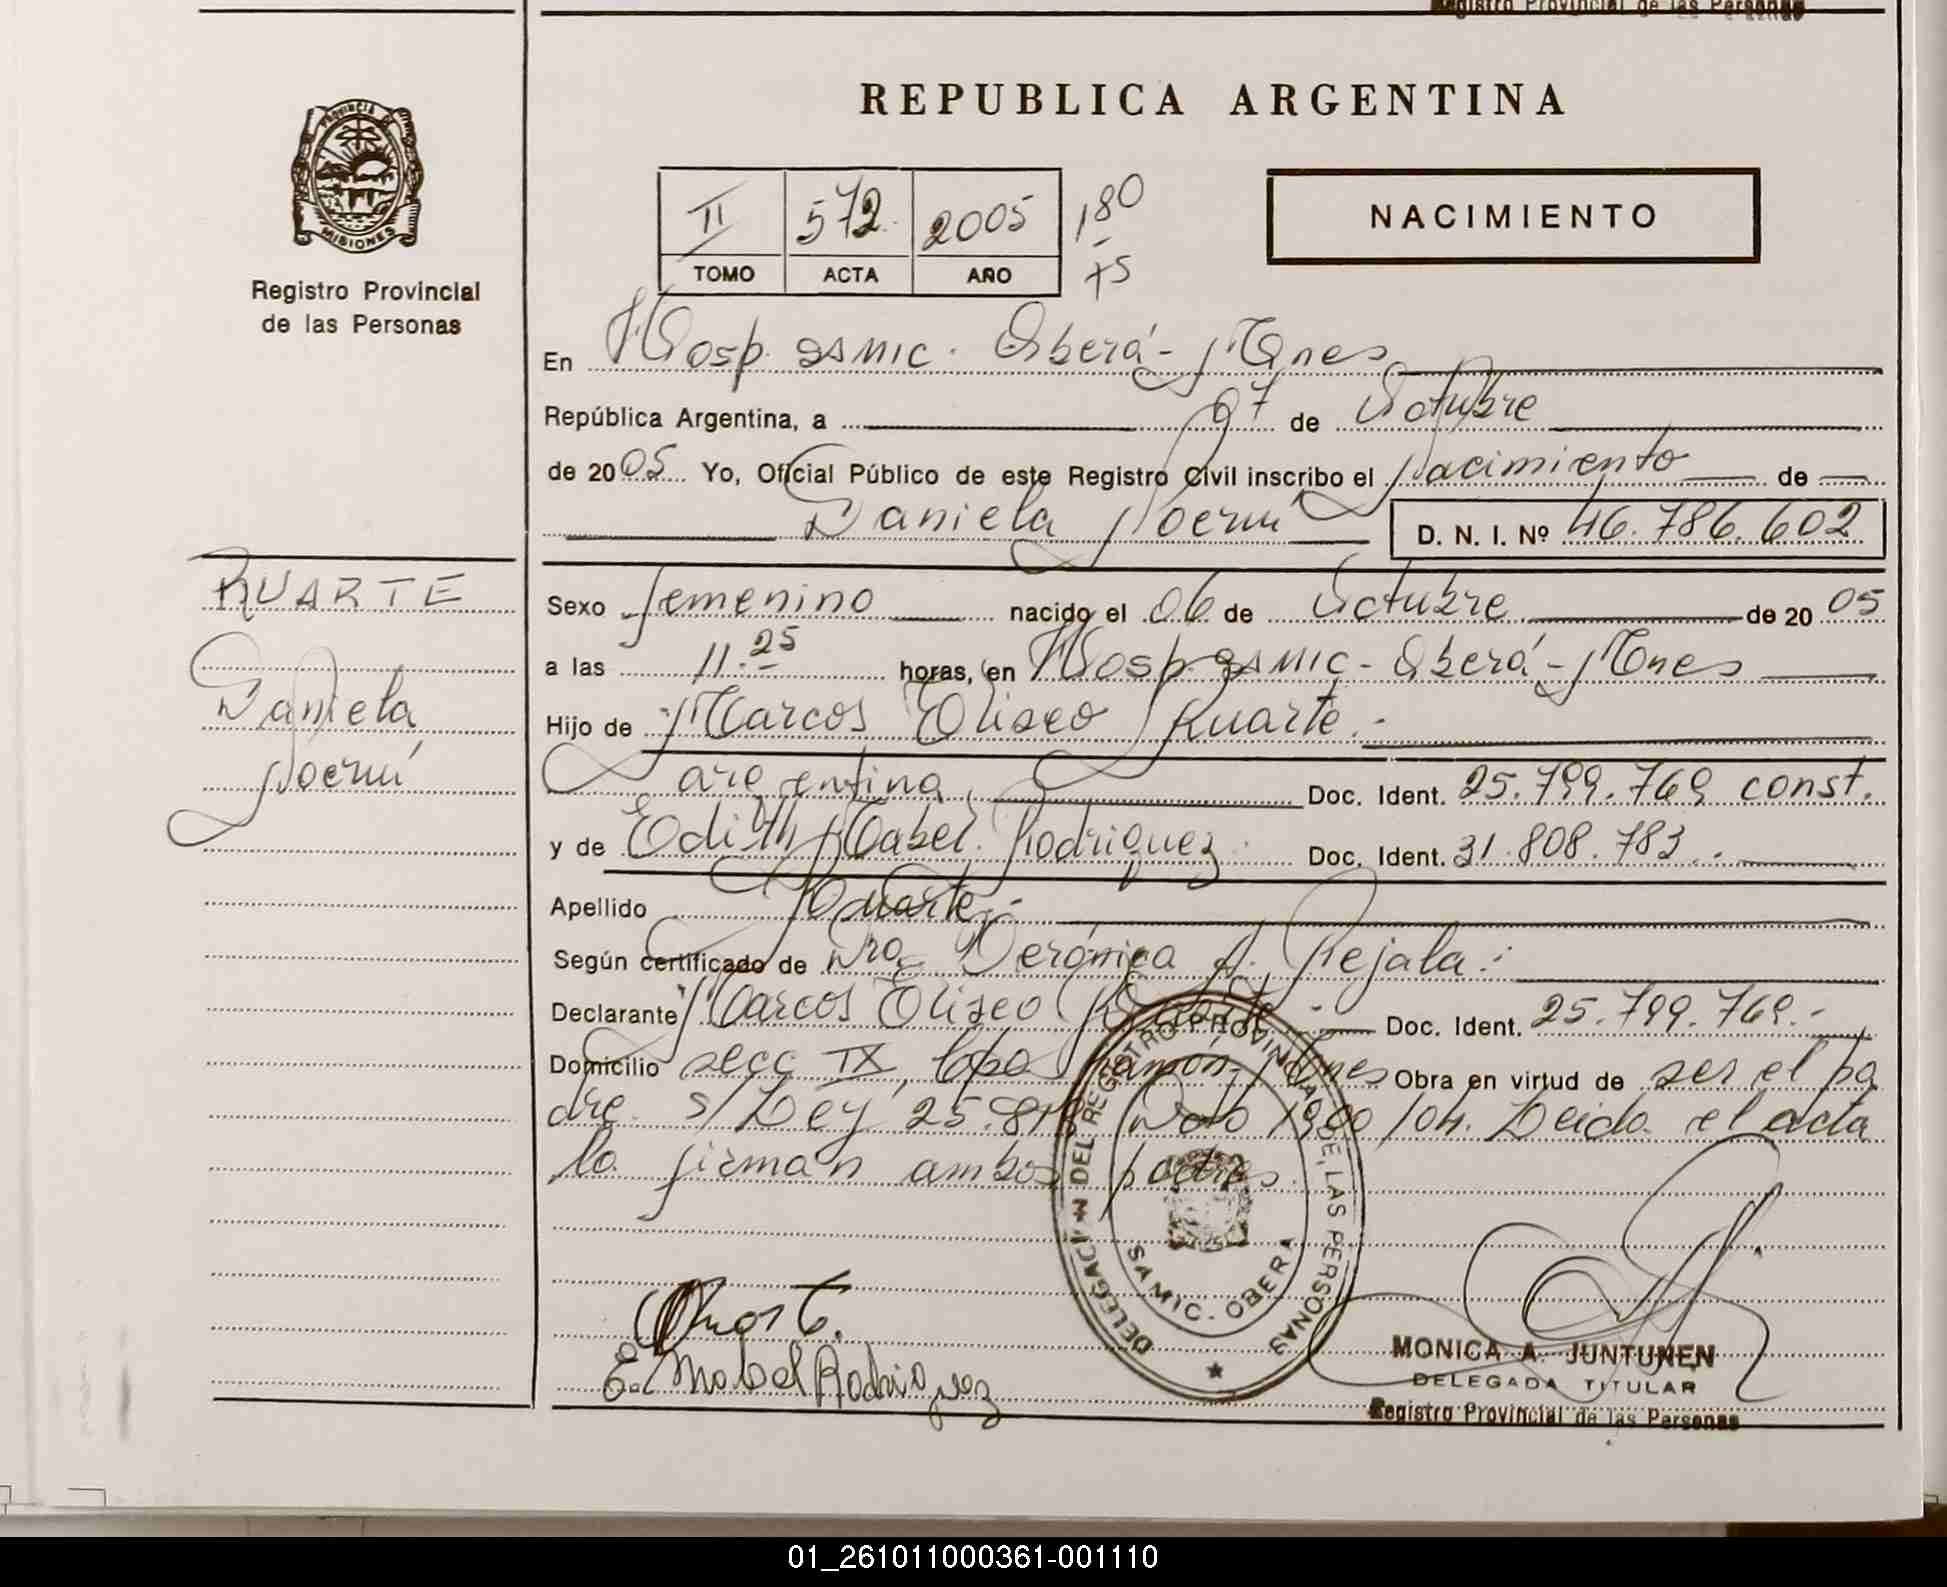 Registro Provincial de las Personas
PROVINCIA DE
MISIONES
Registro Provincial
de las Personas
REPUBLICA ARGENTINA
II 572 2005 180
TOMO ACTA AÑO 75
NACIMIENTO
En Hosp. SAMIC. Oberá - Mnes
República Argentina, a 07 de Octubre
de 2005 Yo, Oficial Público de este Registro Civil inscribo el Nacimiento de
Daniela Noemí D. N. I. Nº 46.786.602
RUARTE
Daniela
Noemí
Sexo femenino nacido el 06 de Octubre de 2005
a las 11.25 horas, en Hosp. SAMIC - Oberá - Mnes
Hijo de Marcos Eliseo Ruarte.-
argentina Doc. Ident. 25.799.769 const.
y de Edith Mabel Rodriguez Doc. Ident. 31.808.783.
Apellido Ruarte.-
Según certificado de Dra. Verónica A. Rejala.-
Declarante Marcos Eliseo Ruarte.- Doc. Ident. 25.799.769.-
Domicilio secc IX, Cpo Ramón, Mnes Obra en virtud de ser el pa
dre. s/Ley 25.819 Dcto 1900/04. Leida el acta
la firman ambos padres.
DELEGACION DEL REGISTRO PROVINCIAL DE LAS PERSONAS
SAMIC. OBERA
E. Mabel Rodriguez
MONICA A. JUNTUNEN
DELEGADA TITULAR
Registro Provincial de las Personas
01_261011000361-001110